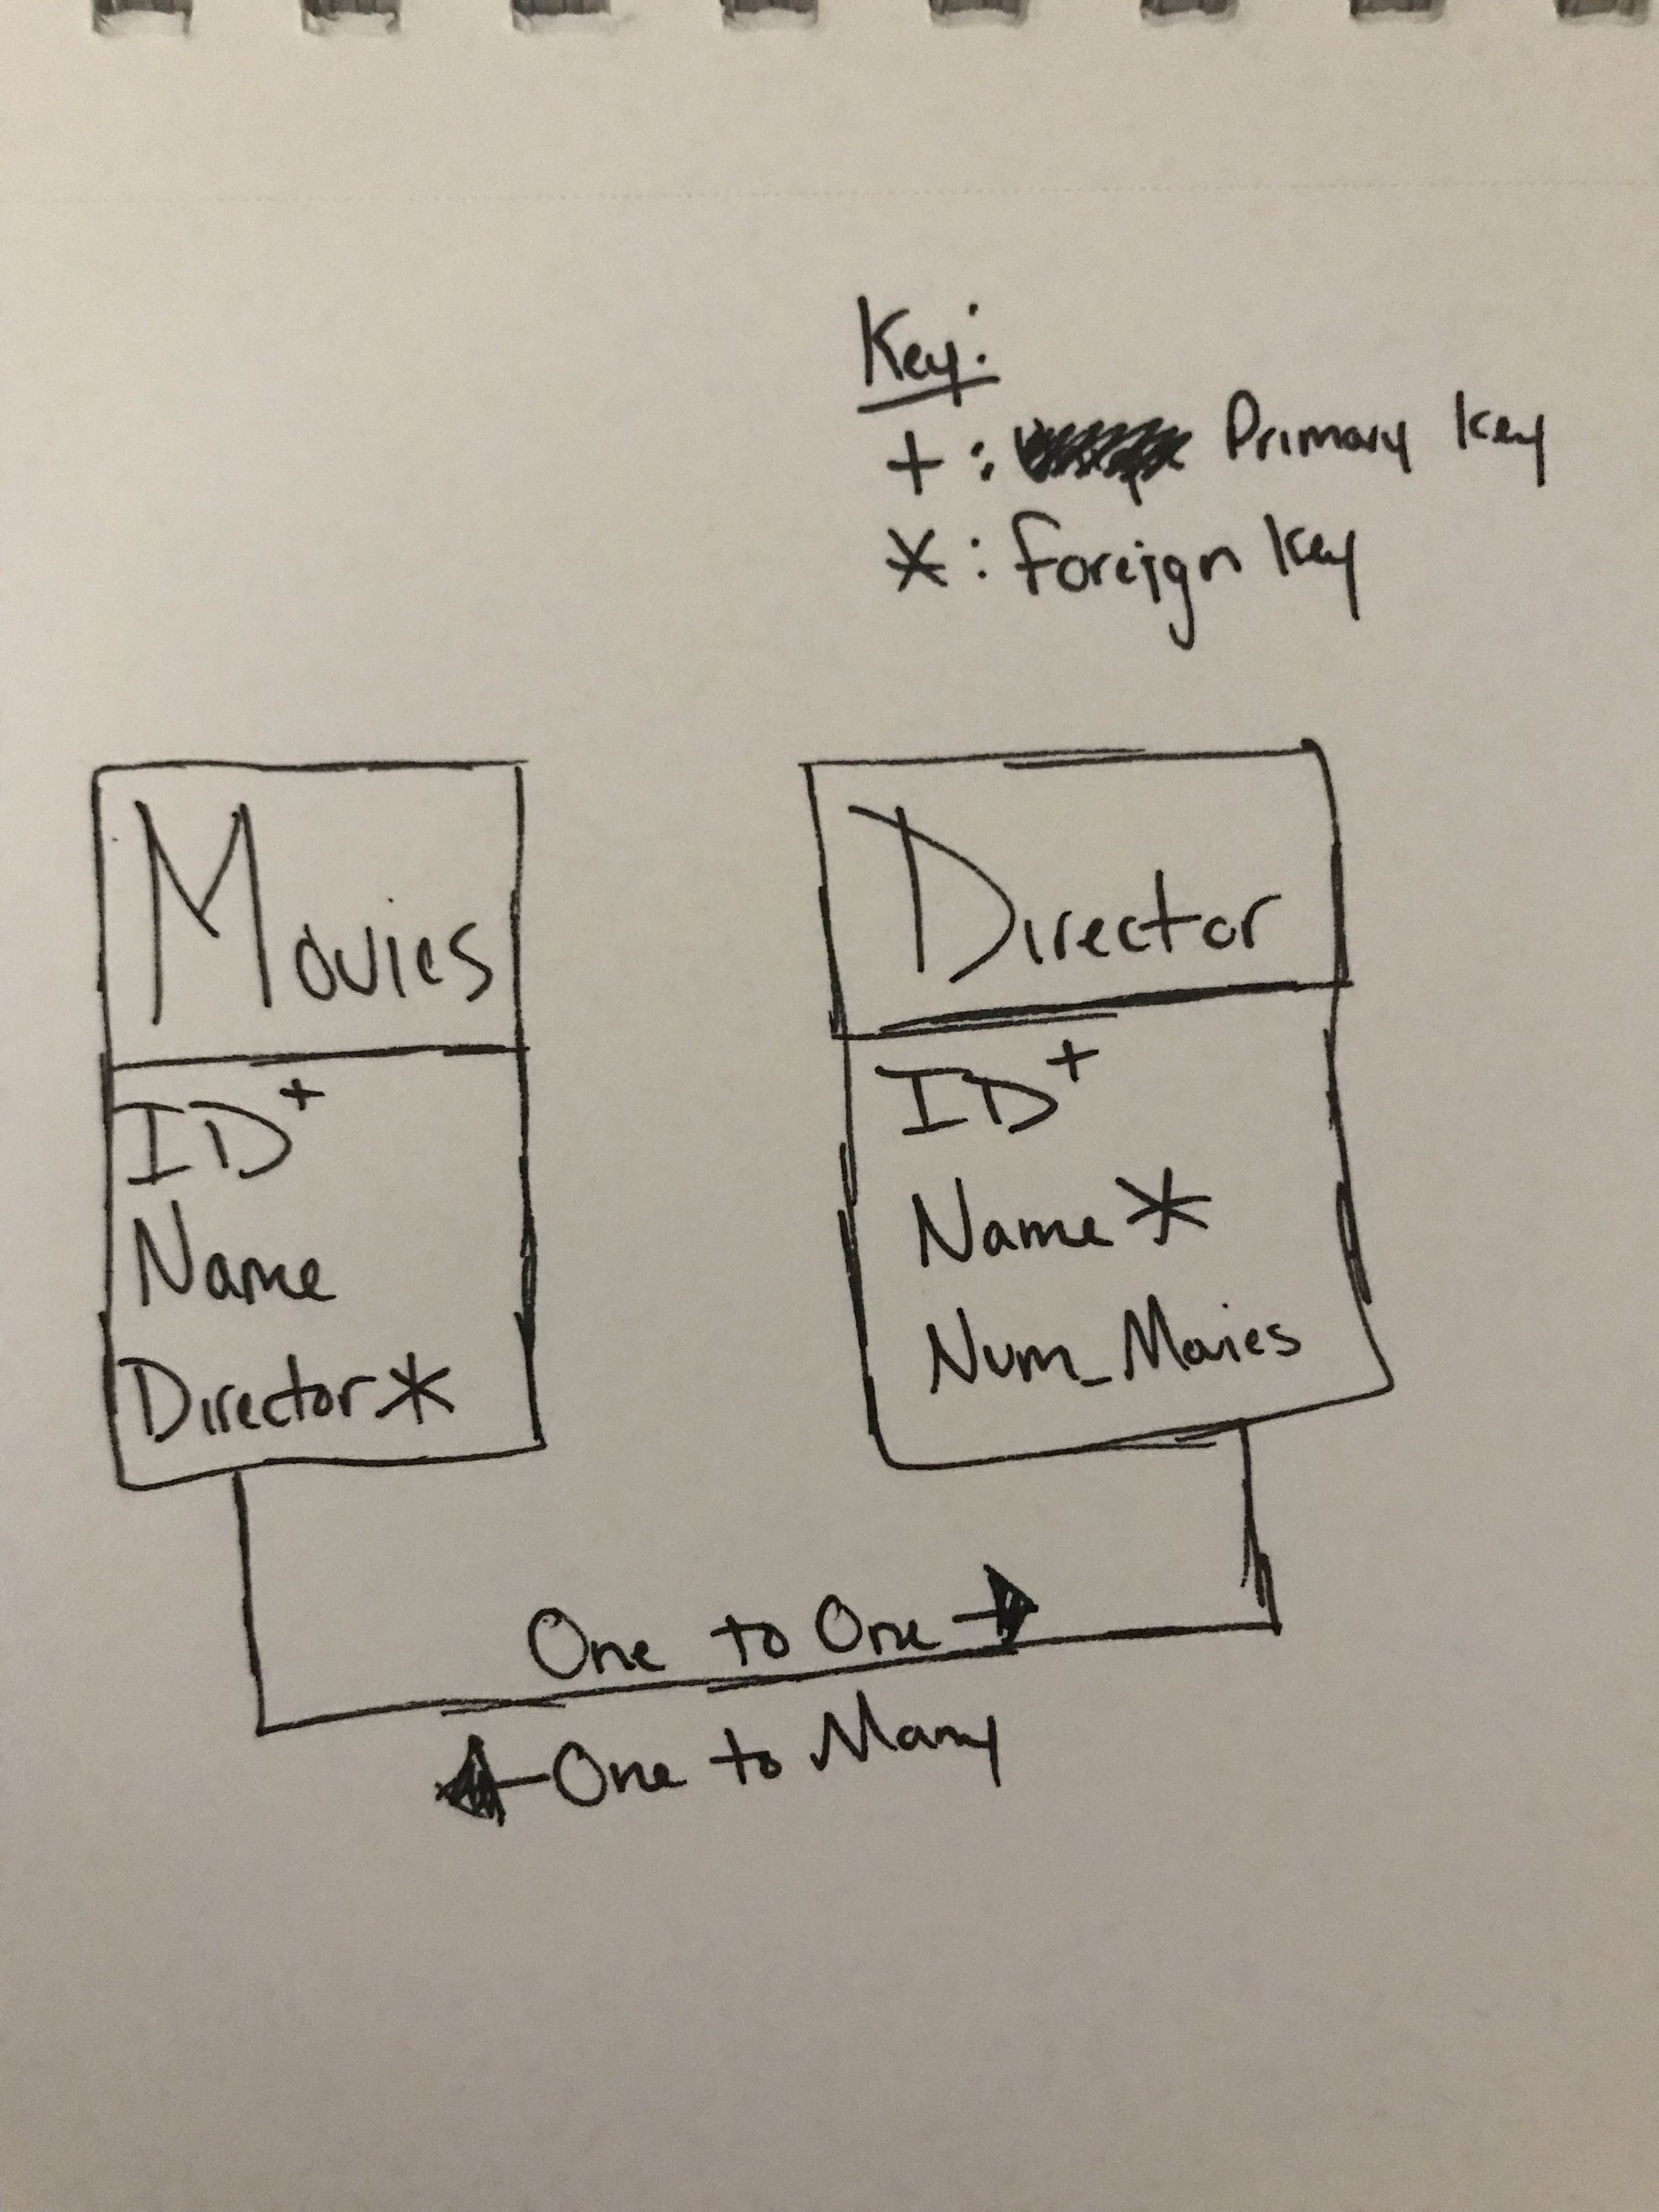 Key:
+: Primary Key
*: Foreign Key
Movies
ID+
Name
Director*
Director
ID+
Name*
Num_Movies
One to One →
← One to Many